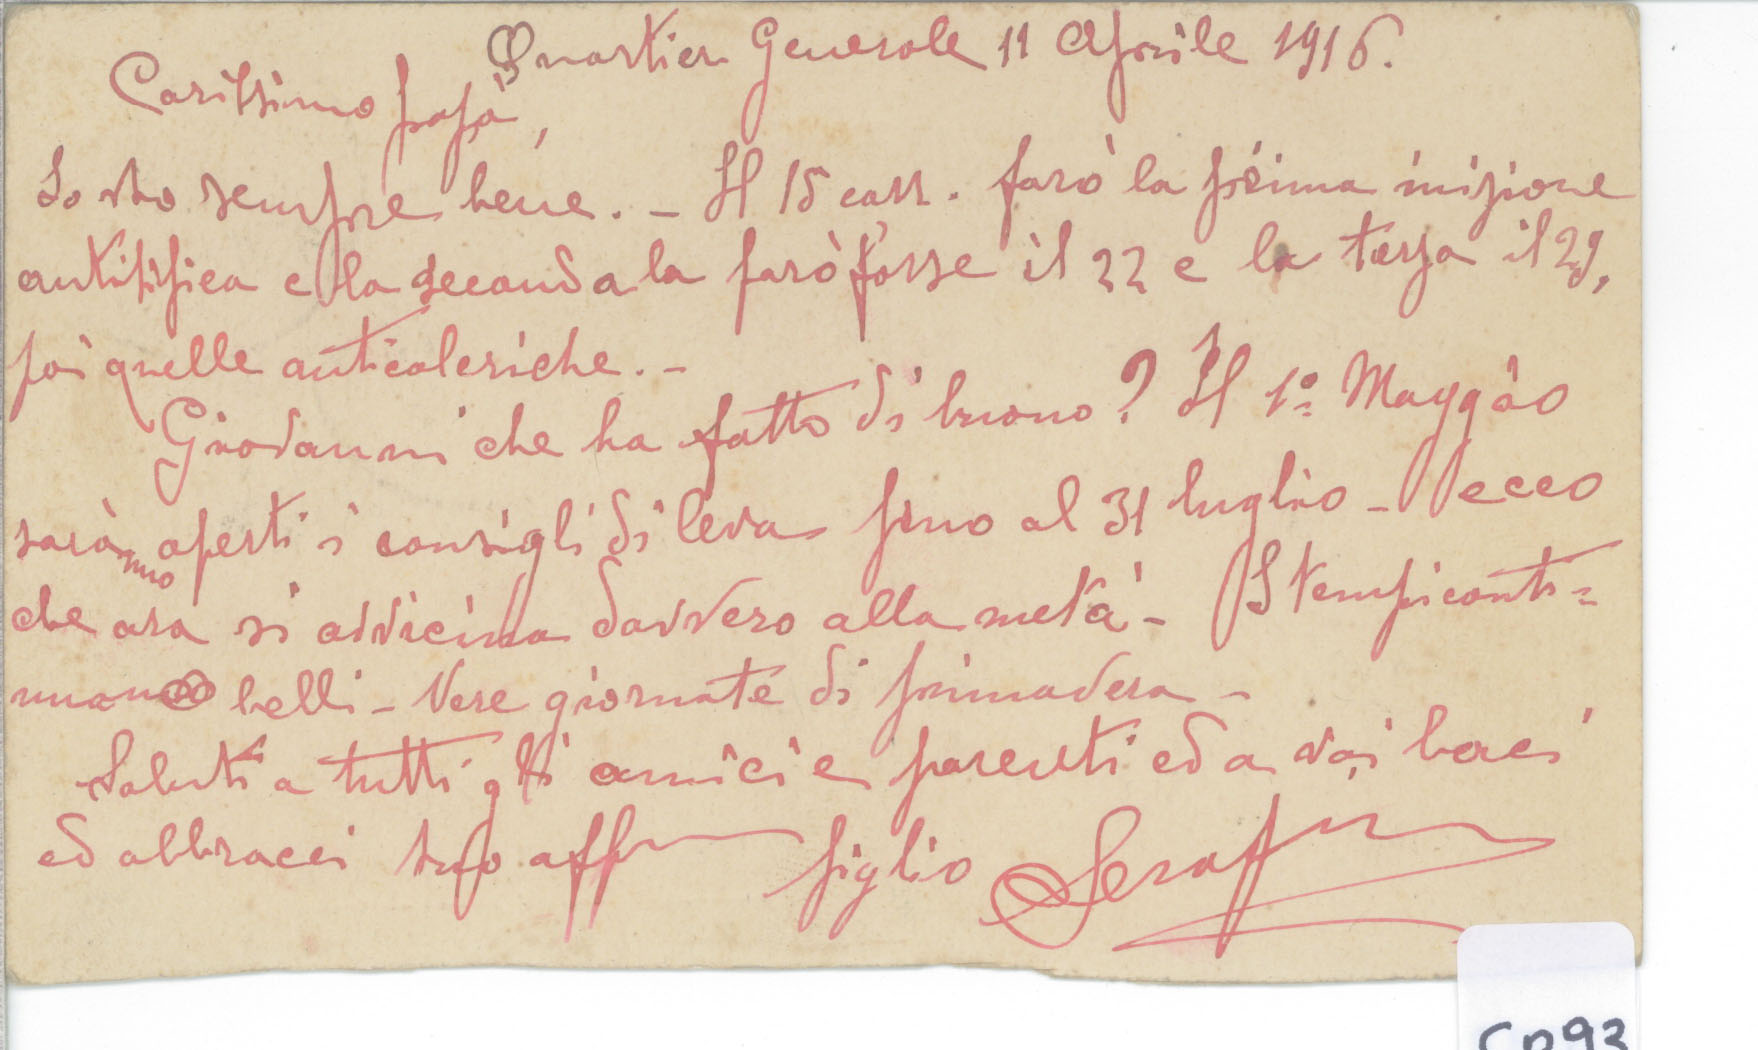 Quartier Generale 11 Aprile 1916.
Carissimo papà,
Io sto sempre bene. - Il 15 corr. farò la prima inizione
antitifica e la seconda la farò forse il 22 e la terza il 29,
poi quelle anticoleriche. -
Giovanni che ha fatto di buono? Il 1º Maggio
saranno aperti i consigli di leva fino al 31 luglio - ecco
che ora si avvicina davvero alla metà - I tempi conti=
nuano belli - Vere giornate di primavera -
Saluti a tutti gli amici e parenti ed a voi baci
ed abbracci suo aff figlio Serafino
CP93